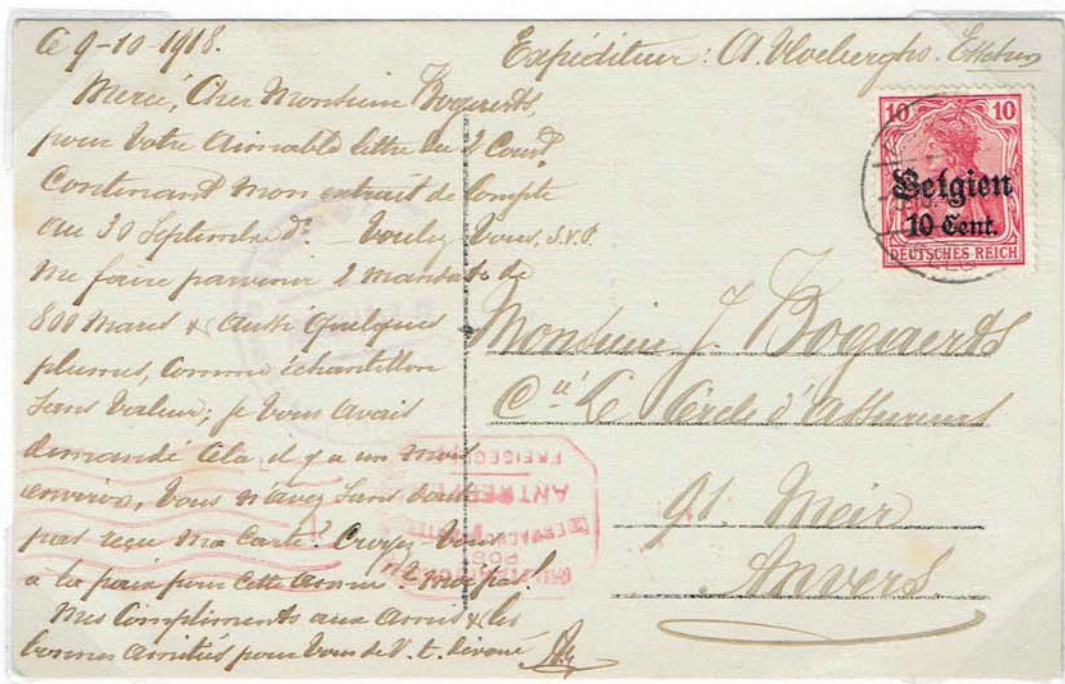 Le 9-10-1918.
Expéditeur : A. Vloeberghs. Esschen
Merci, Cher Monsieur Bogaerts,
pour votre aimable lettre du 2 Court,
Contenant mon extrait de Compte
au 30 Septembre dr. Voulez Vous, S.V.P.
me faire parvenir 2 mandats de
800 Marcs & aussi quelques
plumes, Comme échantillon
sans valeur; je vous avais
demandé Cela il y a un mois
environ, Vous n'avez sans doute
pas reçu ma Carte? Croyez-Vous
à la paix pour cette année? moi pas!
Mes Compliments aux Amis & les
bonnes amitiés pour vous de V. t. dévoué
10 10
Belgien
10 Cent.
DEUTSCHES REICH
Monsieur J. Bogaerts
Cie Le Cercle d'Assureurs
91. Meir
Anvers
ANTWERPEN
FREIGEGEBEN